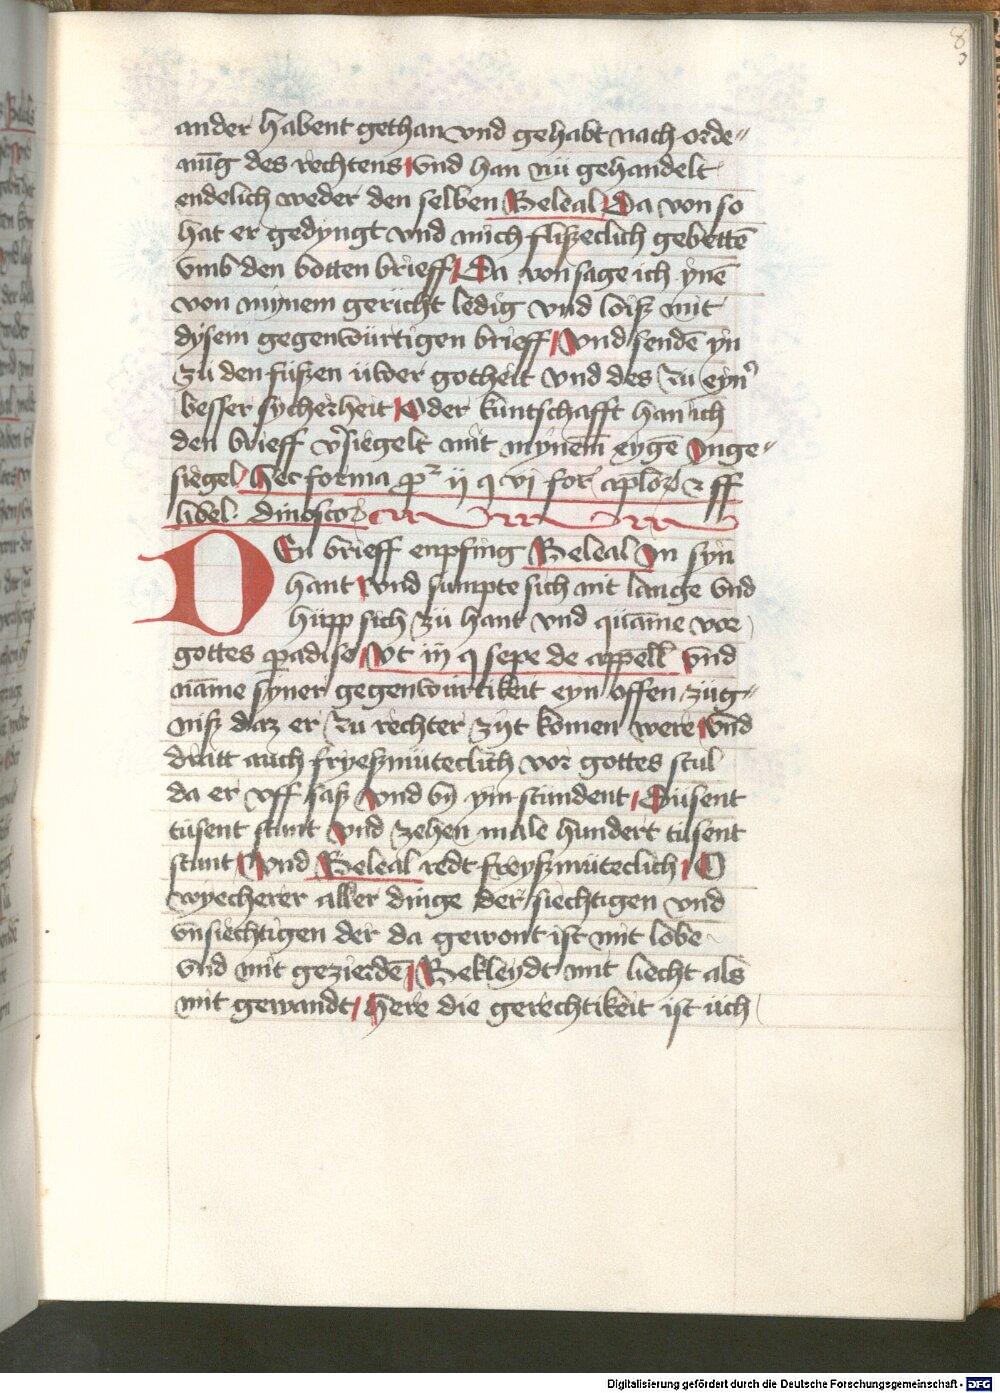 ander habent gethan vnd gehabt nach orde〃
nūg des rechtens vnd han nü gehandelt
endelich weder den selben Beleal Da von so
hat er gedyngt vnd mich fliszeclich gebettē
vmb den botten brieff Da von sage ich ynē
von mynem gericht ledig vnd loisz mit
dysem gegenwürtigen brieff vnd sendē yn
zü den füszen üwer gotheit vnd des zu eyn̉
besser sycherheit Oder kuntschafft han ich
den brieff v̉siegelt mit mynem eygē Inge〃
siegel Hec forma ꝓ ij q vi for aplor ⁊ ff
libel dinoscor
DEn brieff enpfing Beleal In syn
hant vnd sumpte sich nit lange vnd
hüpp sich zü hant vnd quāme vor
gottes ꝑadise Vt in q sepe de appell vnd
nāme syner gegenwürtikeit eyn offen züg〃
nisz daz er zu rechter zijt komen were vnd
dratt auch fryeszmüteclich vor gottes stul
da er vff sasz vnd by ym stündent Düsent
tüsent stunt vnd zehen male hundert tüsent
stunt Vnd Beleal redt freyszmüteclich O
wyecherer aller dinge der siechtigen vnd
vnsiechtigen der da gewont ist mit lobē
vnd mit gezierdē Bekleydt mit liecht als
mit gewandt Here die gerechtikeit ist üch
Digitalisierung gefördert durch die Deutsche Forschungsgemeinschaft - DFG